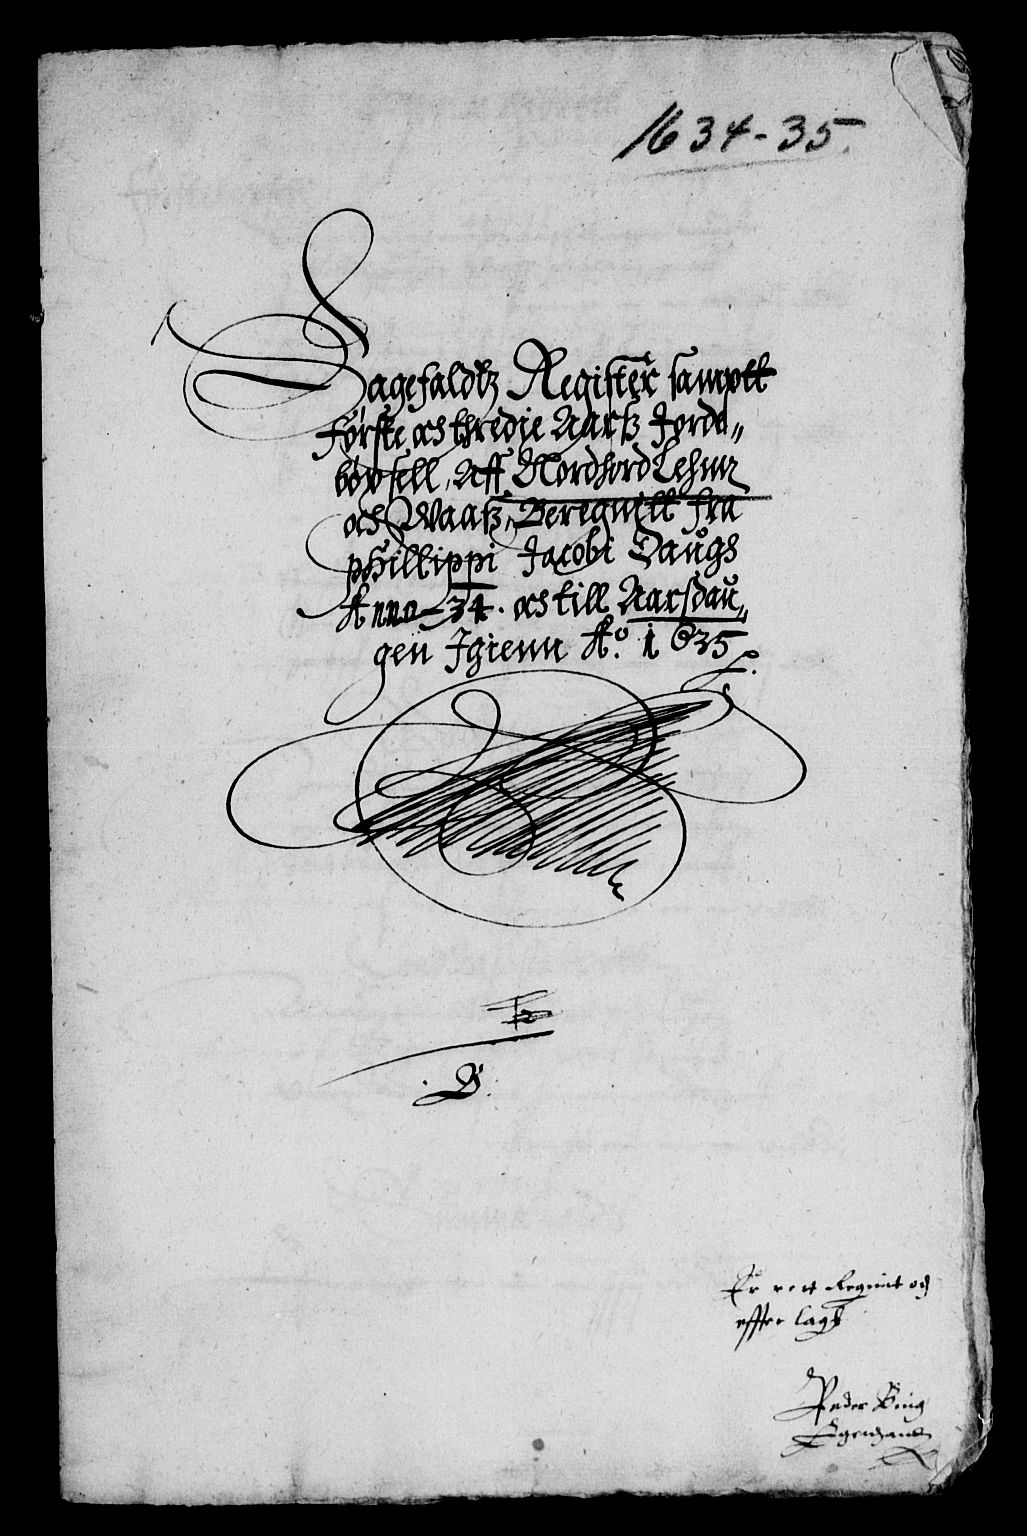 1634-35.
Sagefaldtz Register sampt
förste och thredie Aarß Jorde,,
böxsell, Aff Nordhord Lehnn
och Waaß, Beregnitt fra
phillippi Jacobi Daugs
Anno - 34. och till Aarsdau,,
gen Jgienn Aº. 1635
B.
Er rett Regnit och
effter lagt
Peder Bing
Egenhandt